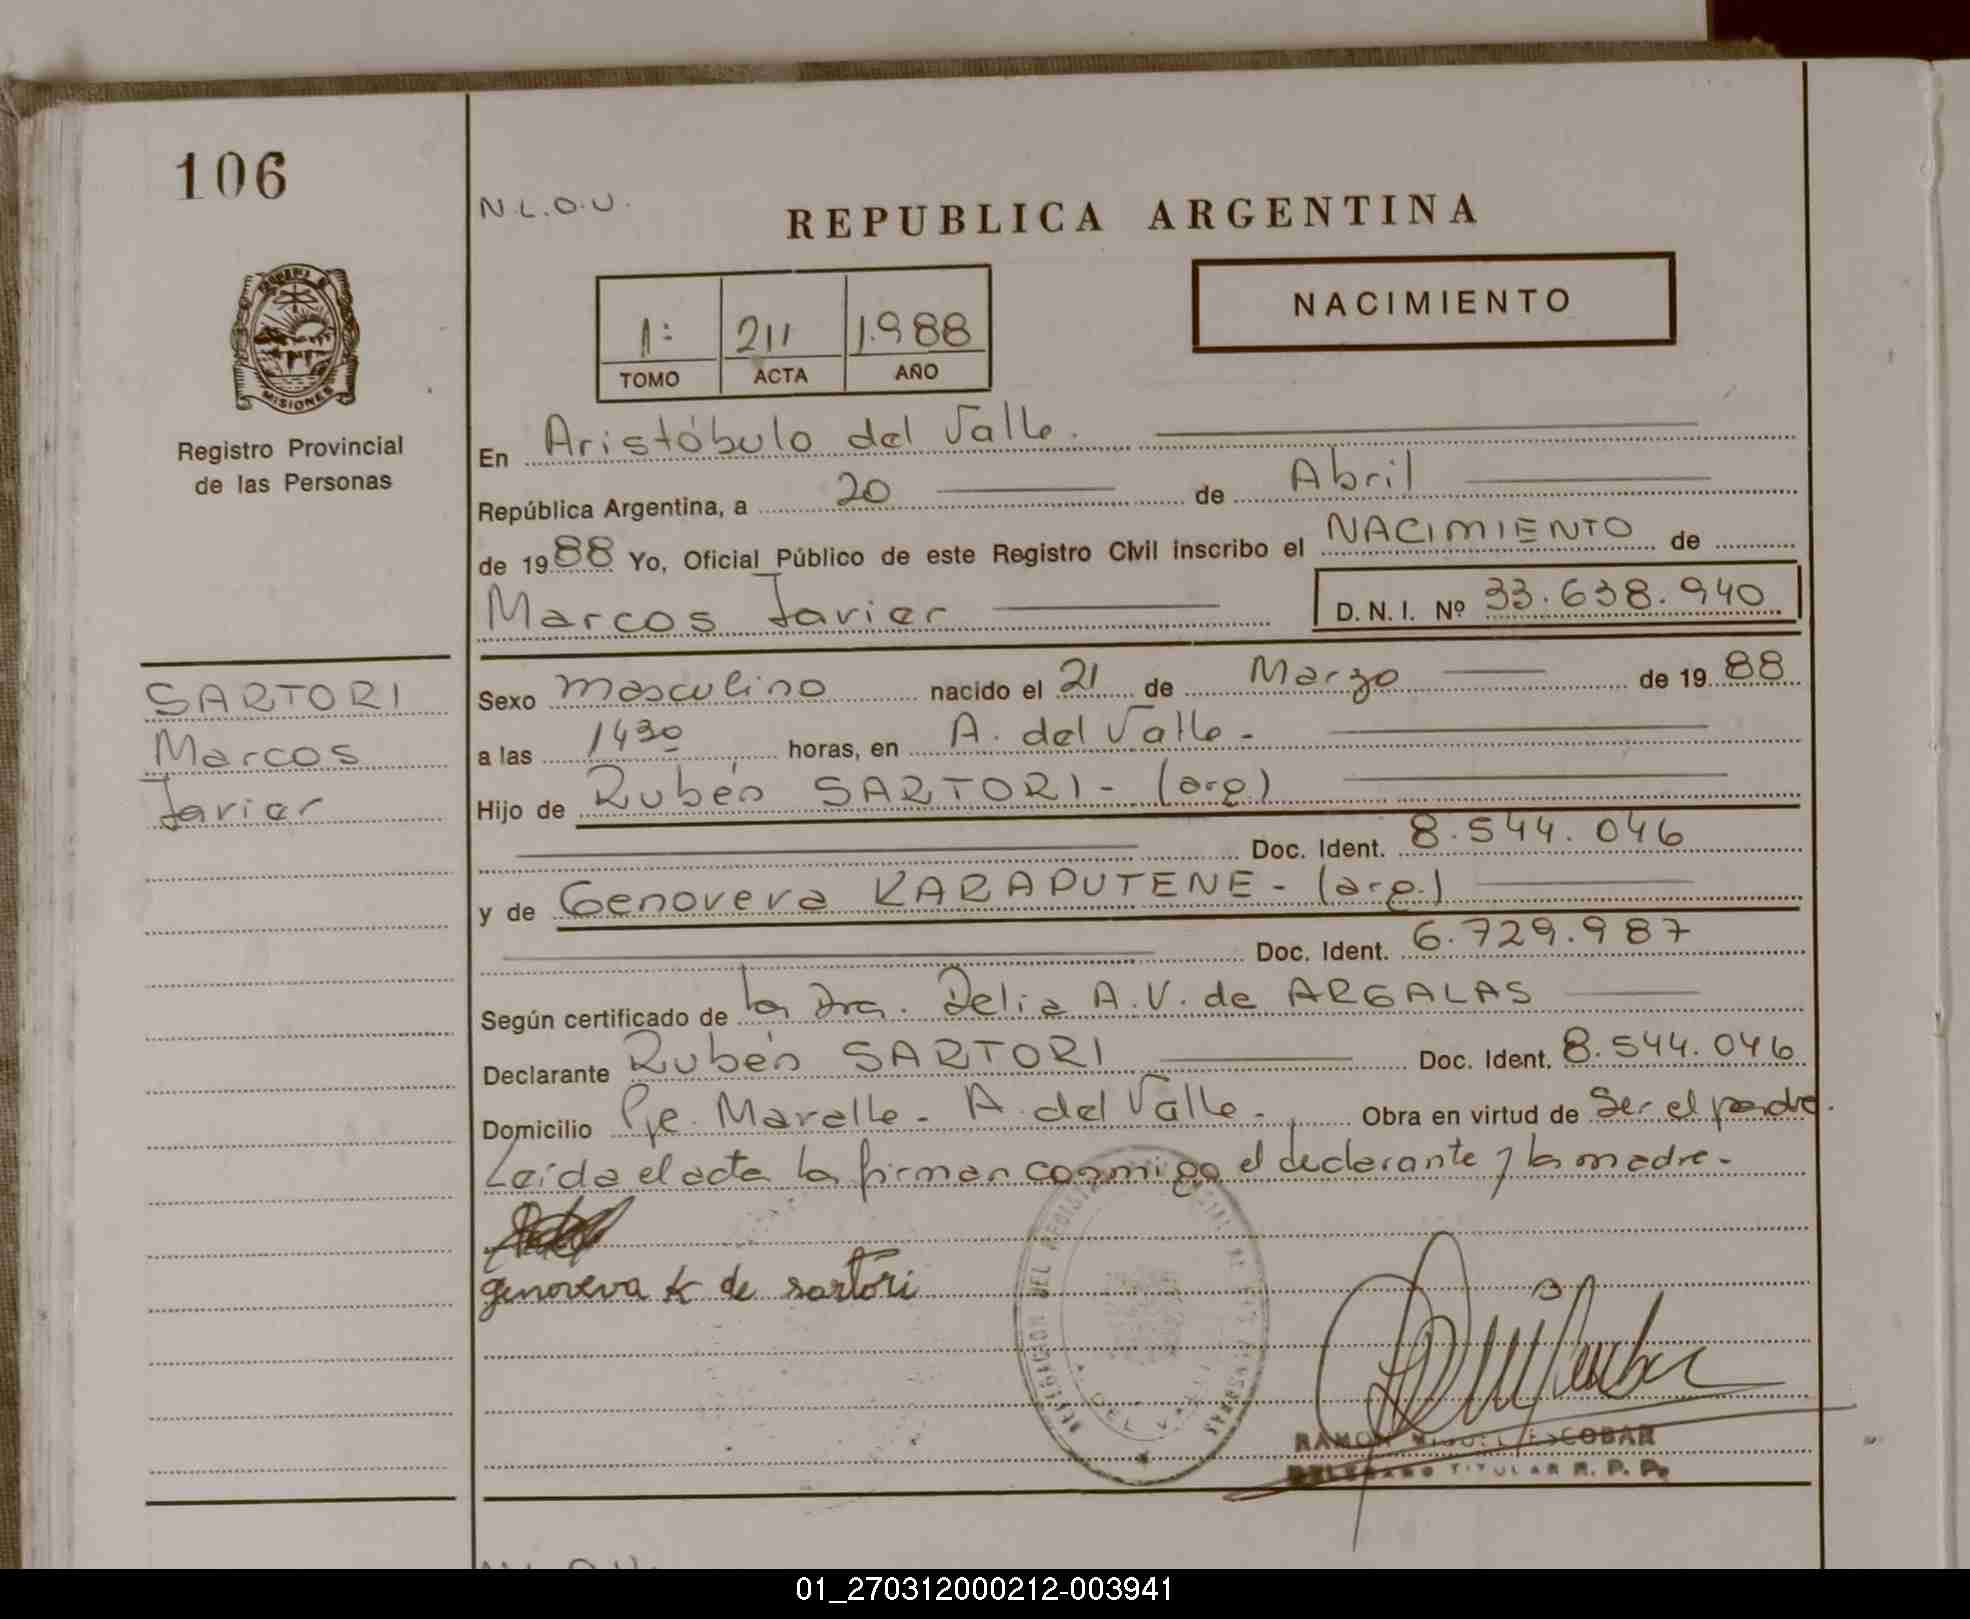 106
N.L.O.U.
REPUBLICA ARGENTINA
NACIMIENTO
1: 211 1.988
TOMO ACTA AÑO
MISIONES
Registro Provincial
de las Personas
En Aristóbulo del Valle.
República Argentina, a 20 de Abril
de 1988 Yo, Oficial Público de este Registro Civil inscribo el NACIMIENTO de
Marcos Javier D.N.I. Nº 33.638.940
SARTORI
Marcos
Javier
Sexo masculino nacido el 21 de Marzo de 1988
a las 1430 horas, en A. del Valle -
Hijo de Rubén SARTORI - (arg)
Doc. Ident. 8.544.046
y de Genoveva KARAPUTENE - (arg.)
Doc. Ident. 6.729.987
Según certificado de la Dra. Delia A.V. de ARGALAS
Declarante Rubén SARTORI Doc. Ident. 8.544.046
Domicilio Pje. Maralle - A. del Valle - Obra en virtud de Ser el padre.
Leída el acta la firman conmigo el declarante y la madre -
genoveva K de sartori
RAMON MIGUEL ESCOBAR
DELEGADO TITULAR R.P.P.
01_270312000212-003941